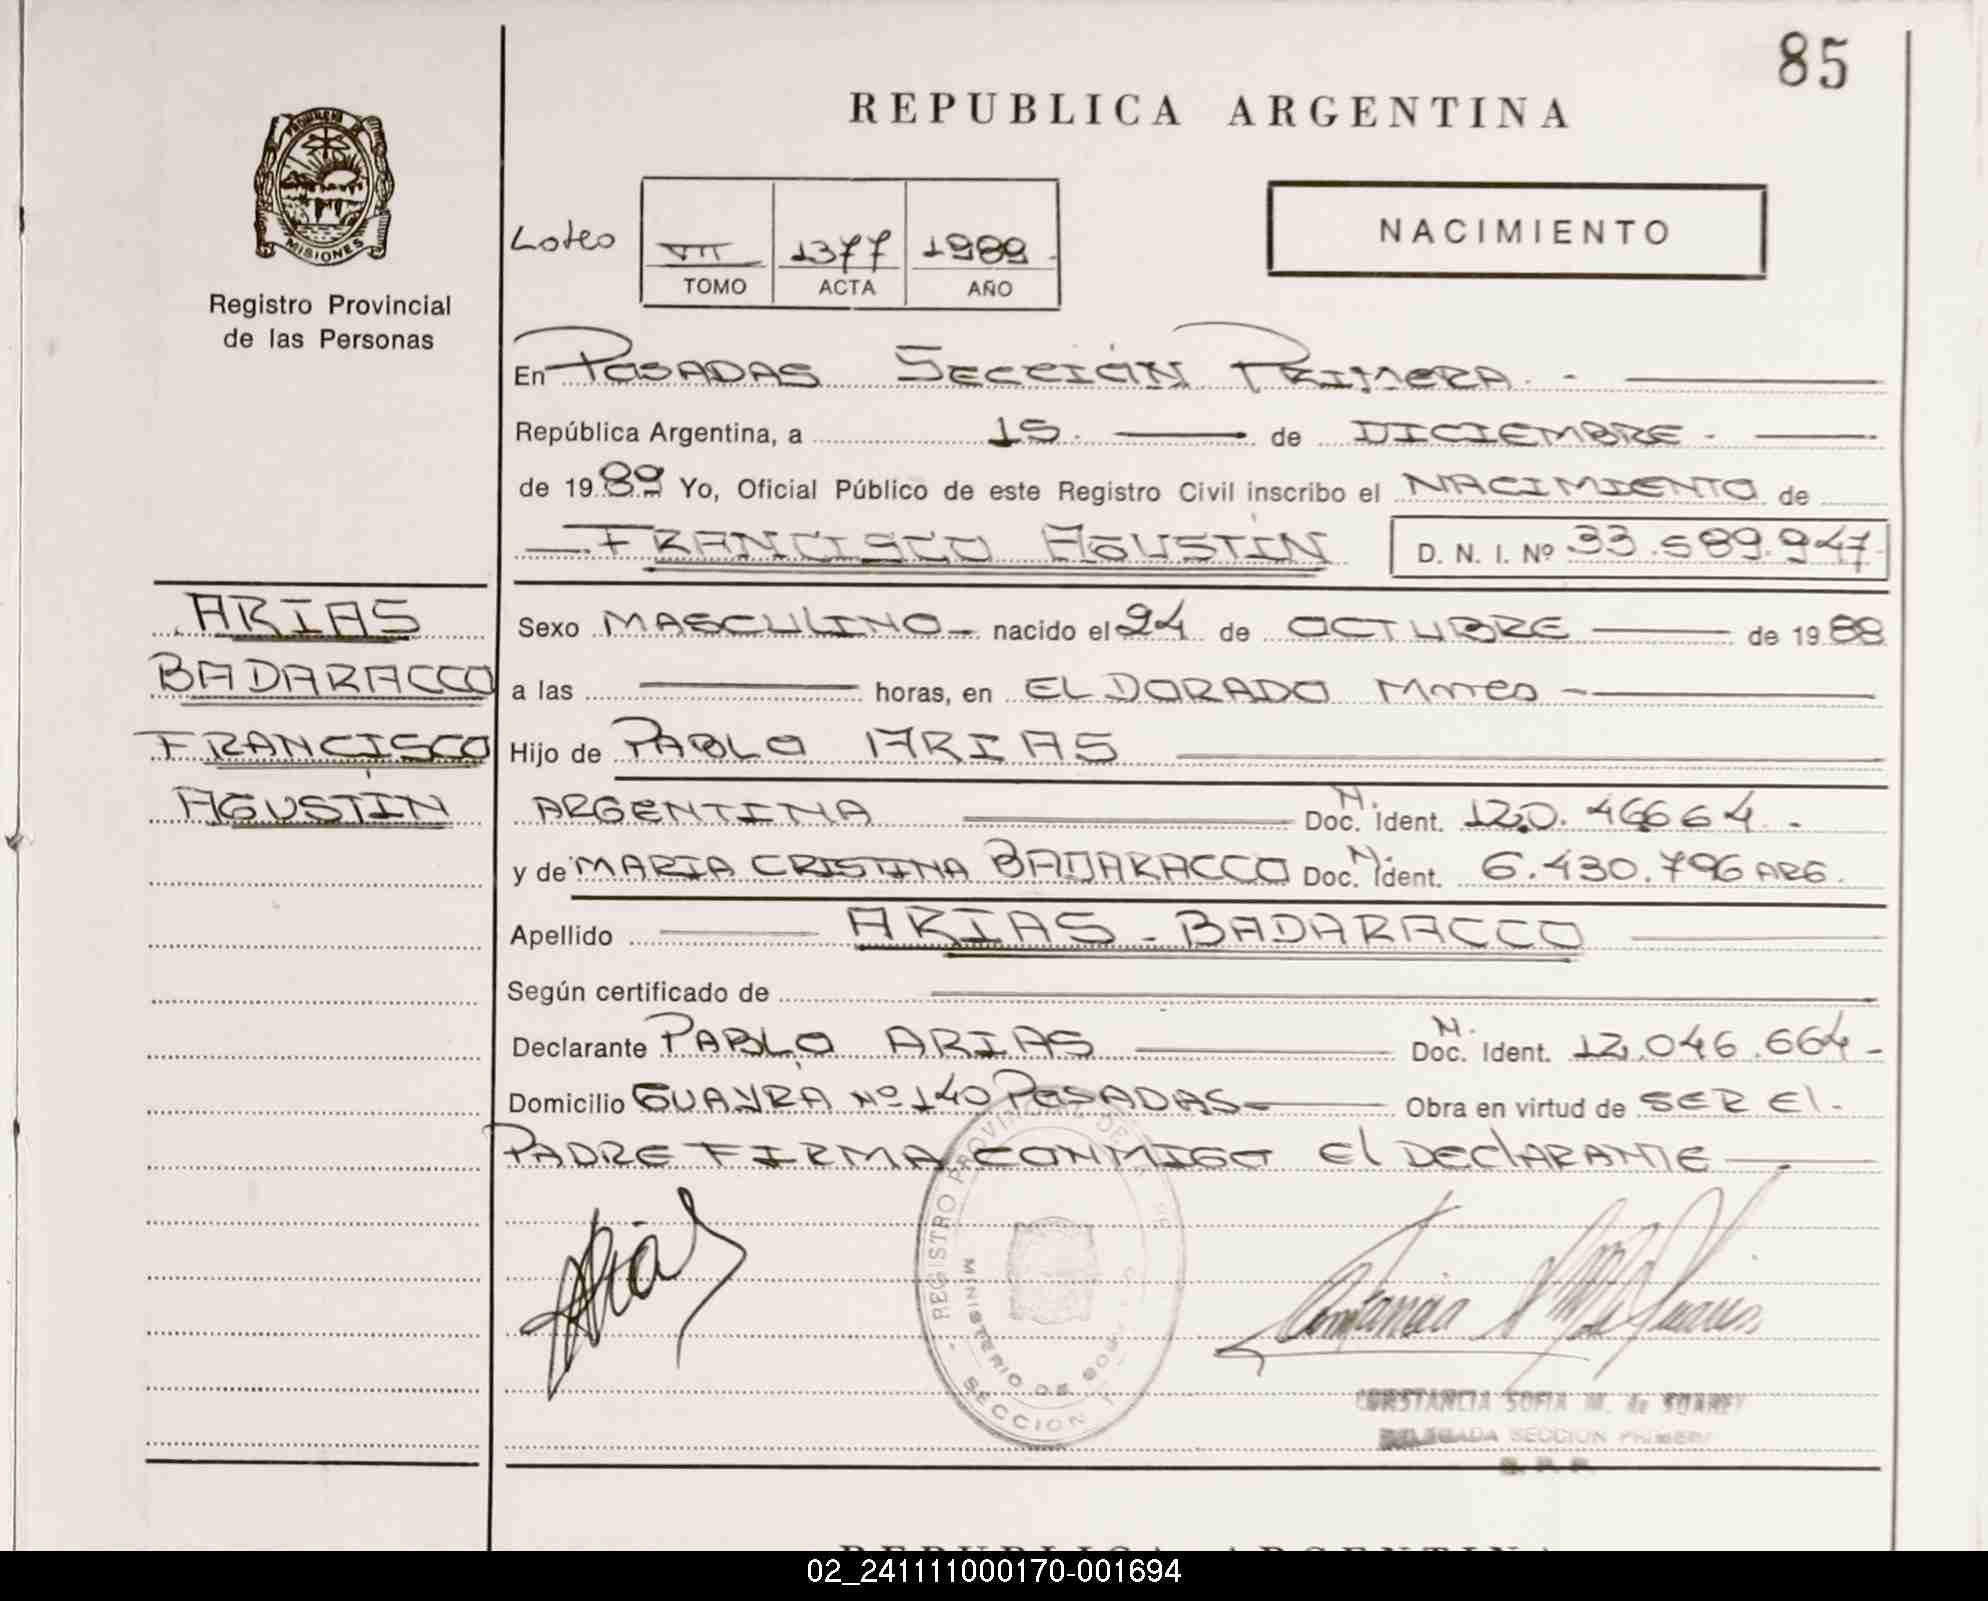 85
REPUBLICA ARGENTINA
MISIONES
Registro Provincial
de las Personas
VII 1377 1989
TOMO ACTA AÑO
NACIMIENTO
En POSADAS SECCIÓN PRIMERA. -
República Argentina, a 15. de DICIEMBRE -
de 1989 Yo, Oficial Público de este Registro Civil inscribo el NACIMIENTO de
FRANCISCO AGUSTÍN D. N. I. Nº 33.589.947
ARIAS
BADARACCO
FRANCISCO
AGUSTÍN
Sexo MASCULINO - nacido el 24 de OCTUBRE de 1988
a las horas, en ELDORADO Mnes -
Hijo de PABLO ARIAS
ARGENTINA M. Doc. Ident. 12.0.46664.-
y de MARIA CRISTINA BADARACCO M. Doc. Ident. 6.430.796 ARG.
Apellido ARIAS - BADARACCO
Según certificado de
Declarante PABLO ARIAS M. Doc. Ident. 12.046.664-
Domicilio GUAYRA Nº 140 POSADAS Obra en virtud de SER El-
PADRE FIRMA CONMIGO El DEClARANTE
Arias
REGISTRO PROVINCIAL DE
MINISTERIO DE GOB
SECCION 1
CONSTANCIA SOFIA M. de SUAREZ
DELEGADA SECCION PRIMERA
02_241111000170-001694